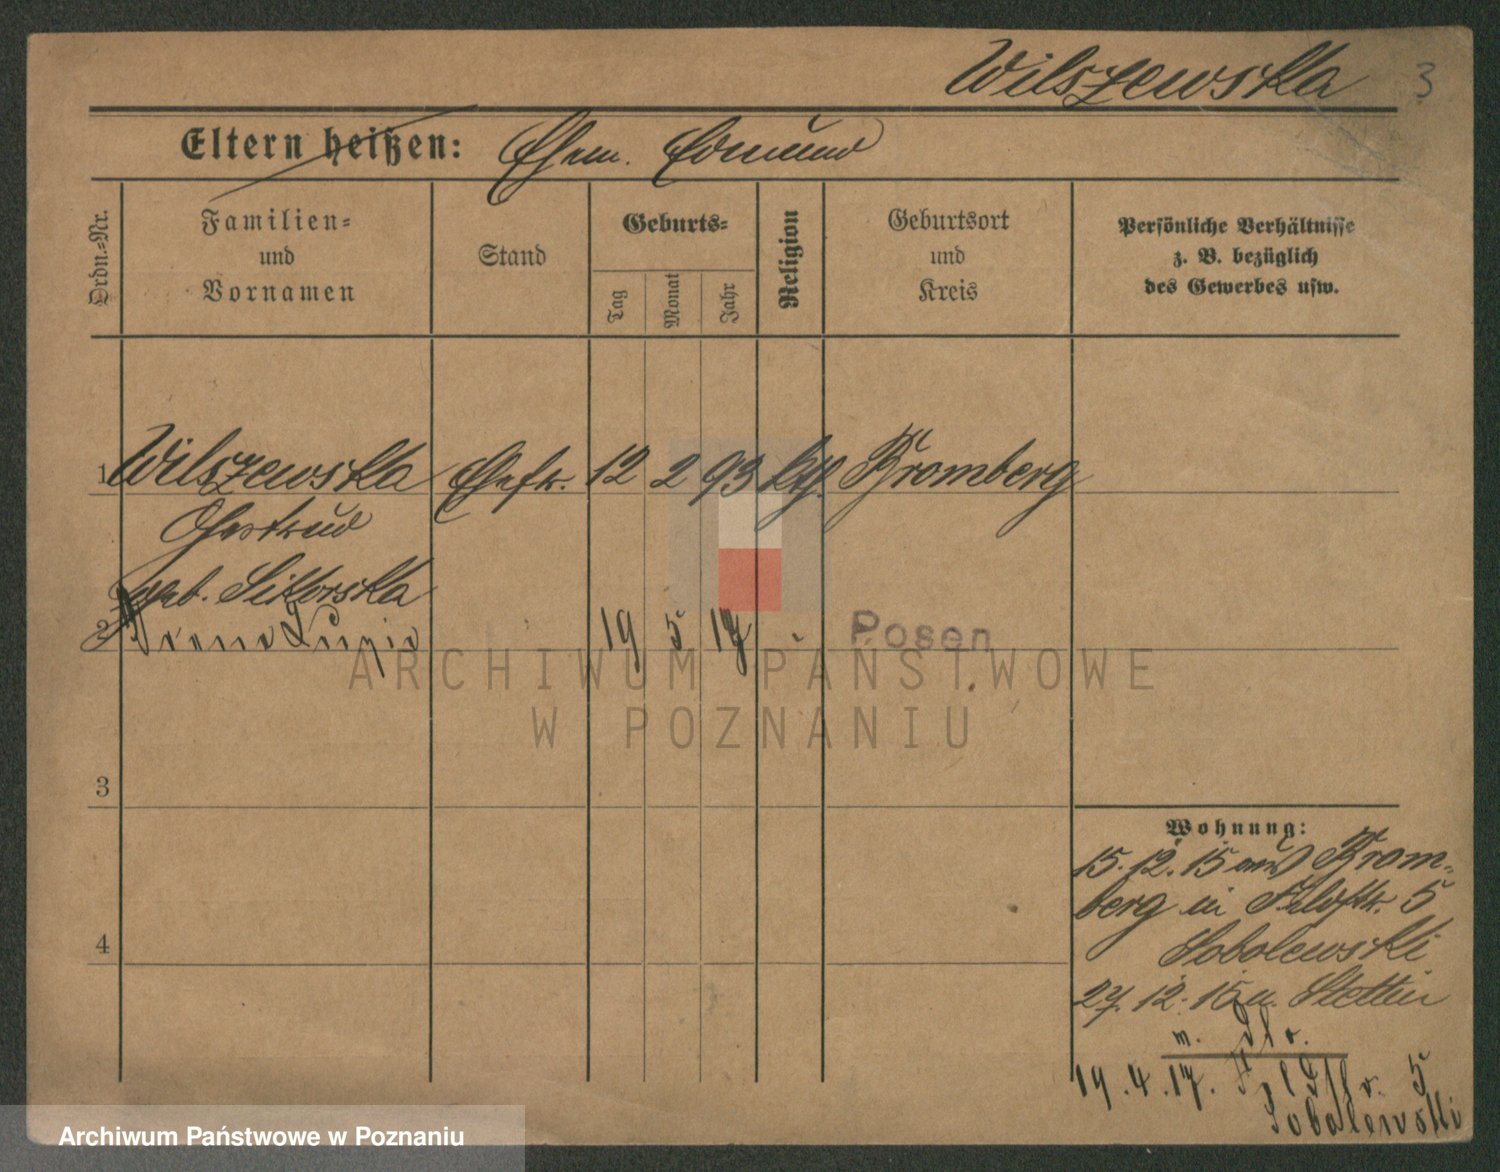 Wilszewska 3
Eltern heißen: Ehem. Edmund
Ordn.-Nr.
Familien-
und
Vornamen
Stand
Geburts-
Tag
Monat
Jahr
Religion
Geburtsort
und
Kreis
Persönliche Verhältnisse
z. B. bezüglich
des Gewerbes usw.
1 Wilszewska Ehefr. 12 2 93 kth. Bromberg
Gertrud
geb. Sikorska
2 Irene Luzie 19 5 17 Posen
ARCHIWUM PAŃSTWOWE
W POZNANIU
3
4
Wohnung:
15.12.15 aus Brom-
berg in Feldstr. 5
Sobolewski
27.12.15 n. Stettin
m.
19.4.17. Feldstr. 5
Sobolewski
Archiwum Państwowe w Poznaniu